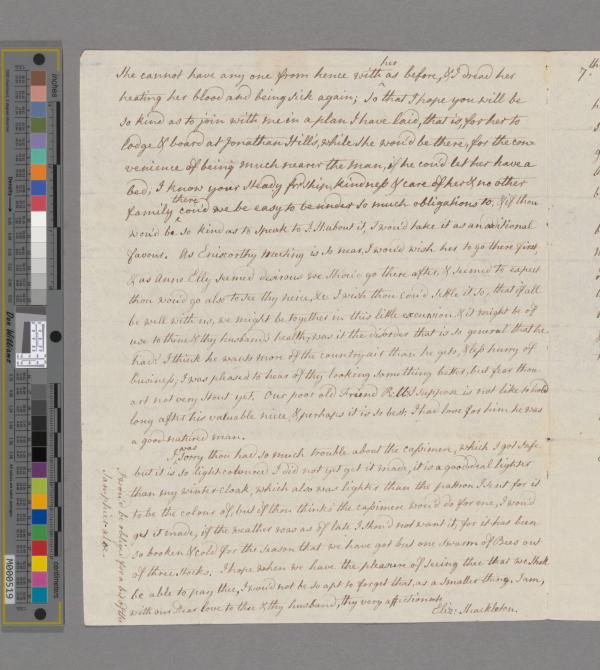 She cannot have any one from hence with her as before, & I dread her
heating her blood and being sick again; So that I hope you will be
so kind as to join with me in a plan I have laid, that is, for her to
lodge & board at Jonathan Hills, while she wou'd be there, for the con-
venience of being much nearer the man, if he cou'd let her have a
bed; I know your steady frdship, kindness & care of her & no other
family there cou'd we be easy to be under so much obligations to; & if thou
wou'd be so kind as to speak to J: H: about it, I wou'd take it as an aditional
favour. As Eniscorthy meeting is so near, I wou'd wish her to go there first,
& as Anne Elly seemed desirous we shou'd go there after, & seemed to expect
thou wou'd go also to see thy neice, &c I wish thou cou'd settle it so, that if all
be well with us, we might be together in this little excursion & it might be of
use to thine & thy husband's health, was it the disorder that is so general that he
had? I think he wants more of the country air than he gets, & less hurry of
business; I was pleased to hear of thy looking something better, but fear thou
art not very stout yet. Our poor old Friend I suppose is not like to hold
long after his valuable niece, & perhaps it is so best; I had love for him he was
a good natured man.
I was sorry thou had so much trouble about the casimere, which I got safe
but it is so light coloured I did not yet get it made, it is a good deal lighter
than my winter cloak, which also was lighter than the pattron I sent for it
to be the colour of, but if thou thinks the casimere wou'd do for me, I wou'd
get it made, if the weather was as of late I shou'd not want it, for it has been
so broken & cold for the season that we have got but one swarm of Bees out
of three stocks. I hope when we have the pleasure of seeing thee that we shall
be able to pay thee, I wou'd not be so apt to forget that, as a smaller thing. I am,
with our Dear love to thee & thy husband, thy very affectionate
Eliz: Shackleton.
I wou'd be obliged for a bit of the
7th
inches
centimeters
Density
Don Williams
M000519